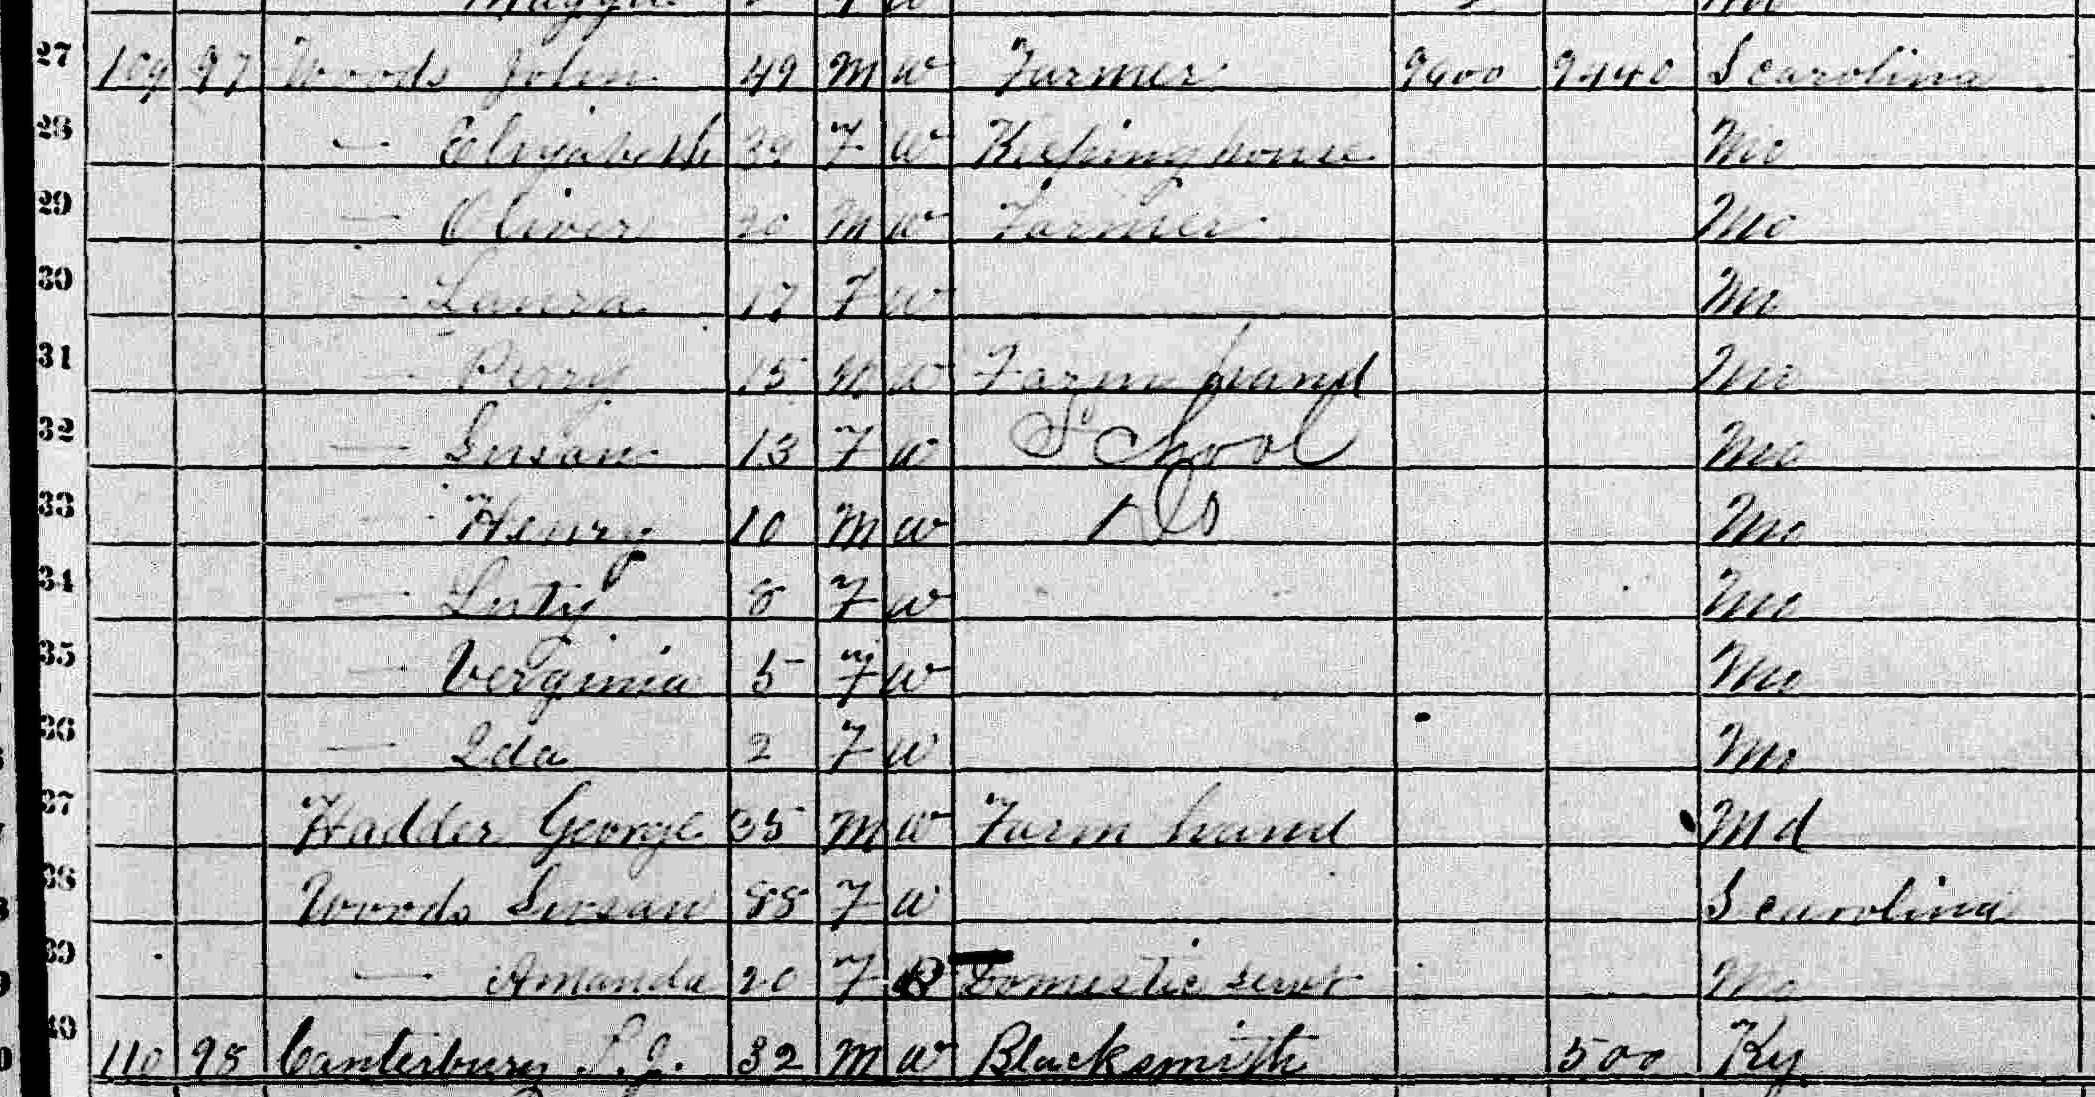 Maggie
27 109 97 Woods John 49 M W Farmer 9600 9440 S carolina
28 — Elizabeth 39 F W Keeping house Mo
29 — Oliver 20 M W Farmer Mo
30 — Laura 17 F W Mo
31 — Perry 15 M W Farm hand Mo
32 — Susan 13 F W School Mo
33 — Henry 10 M W Do Mo
34 — 8 F W Mo
35 — Verginia 5 F W Mo
36 — Ida 2 F W Mo
37 Hadder George 35 M W Farm hand Md
38 Woods Susan 88 F W S carolina
39 — Amanda 20 F B Domestic servt Mo
40 110 98 Canterbury 32 M W Blacksmith 500 Ky